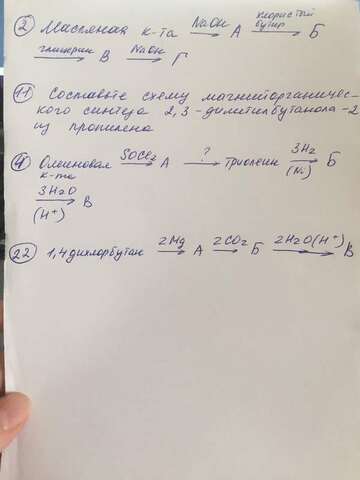 ② Масляная к-та NaOH→ А хлористый бутир→ Б
глицерин→ В NaOH→ Г
⑪ Составьте схему магнийорганичес-
кого синтеза 2,3-диметилбутанола-2
из пропилена
④ Олеиновая к-та SOCl2→ А ?→ триолеин 3H2(Ni)→ Б
3H2O(H⁺)→ В
㉒ 1,4 дихлорбутан 2Mg→ А 2CO2→ Б 2H2O(H⁺)→ В